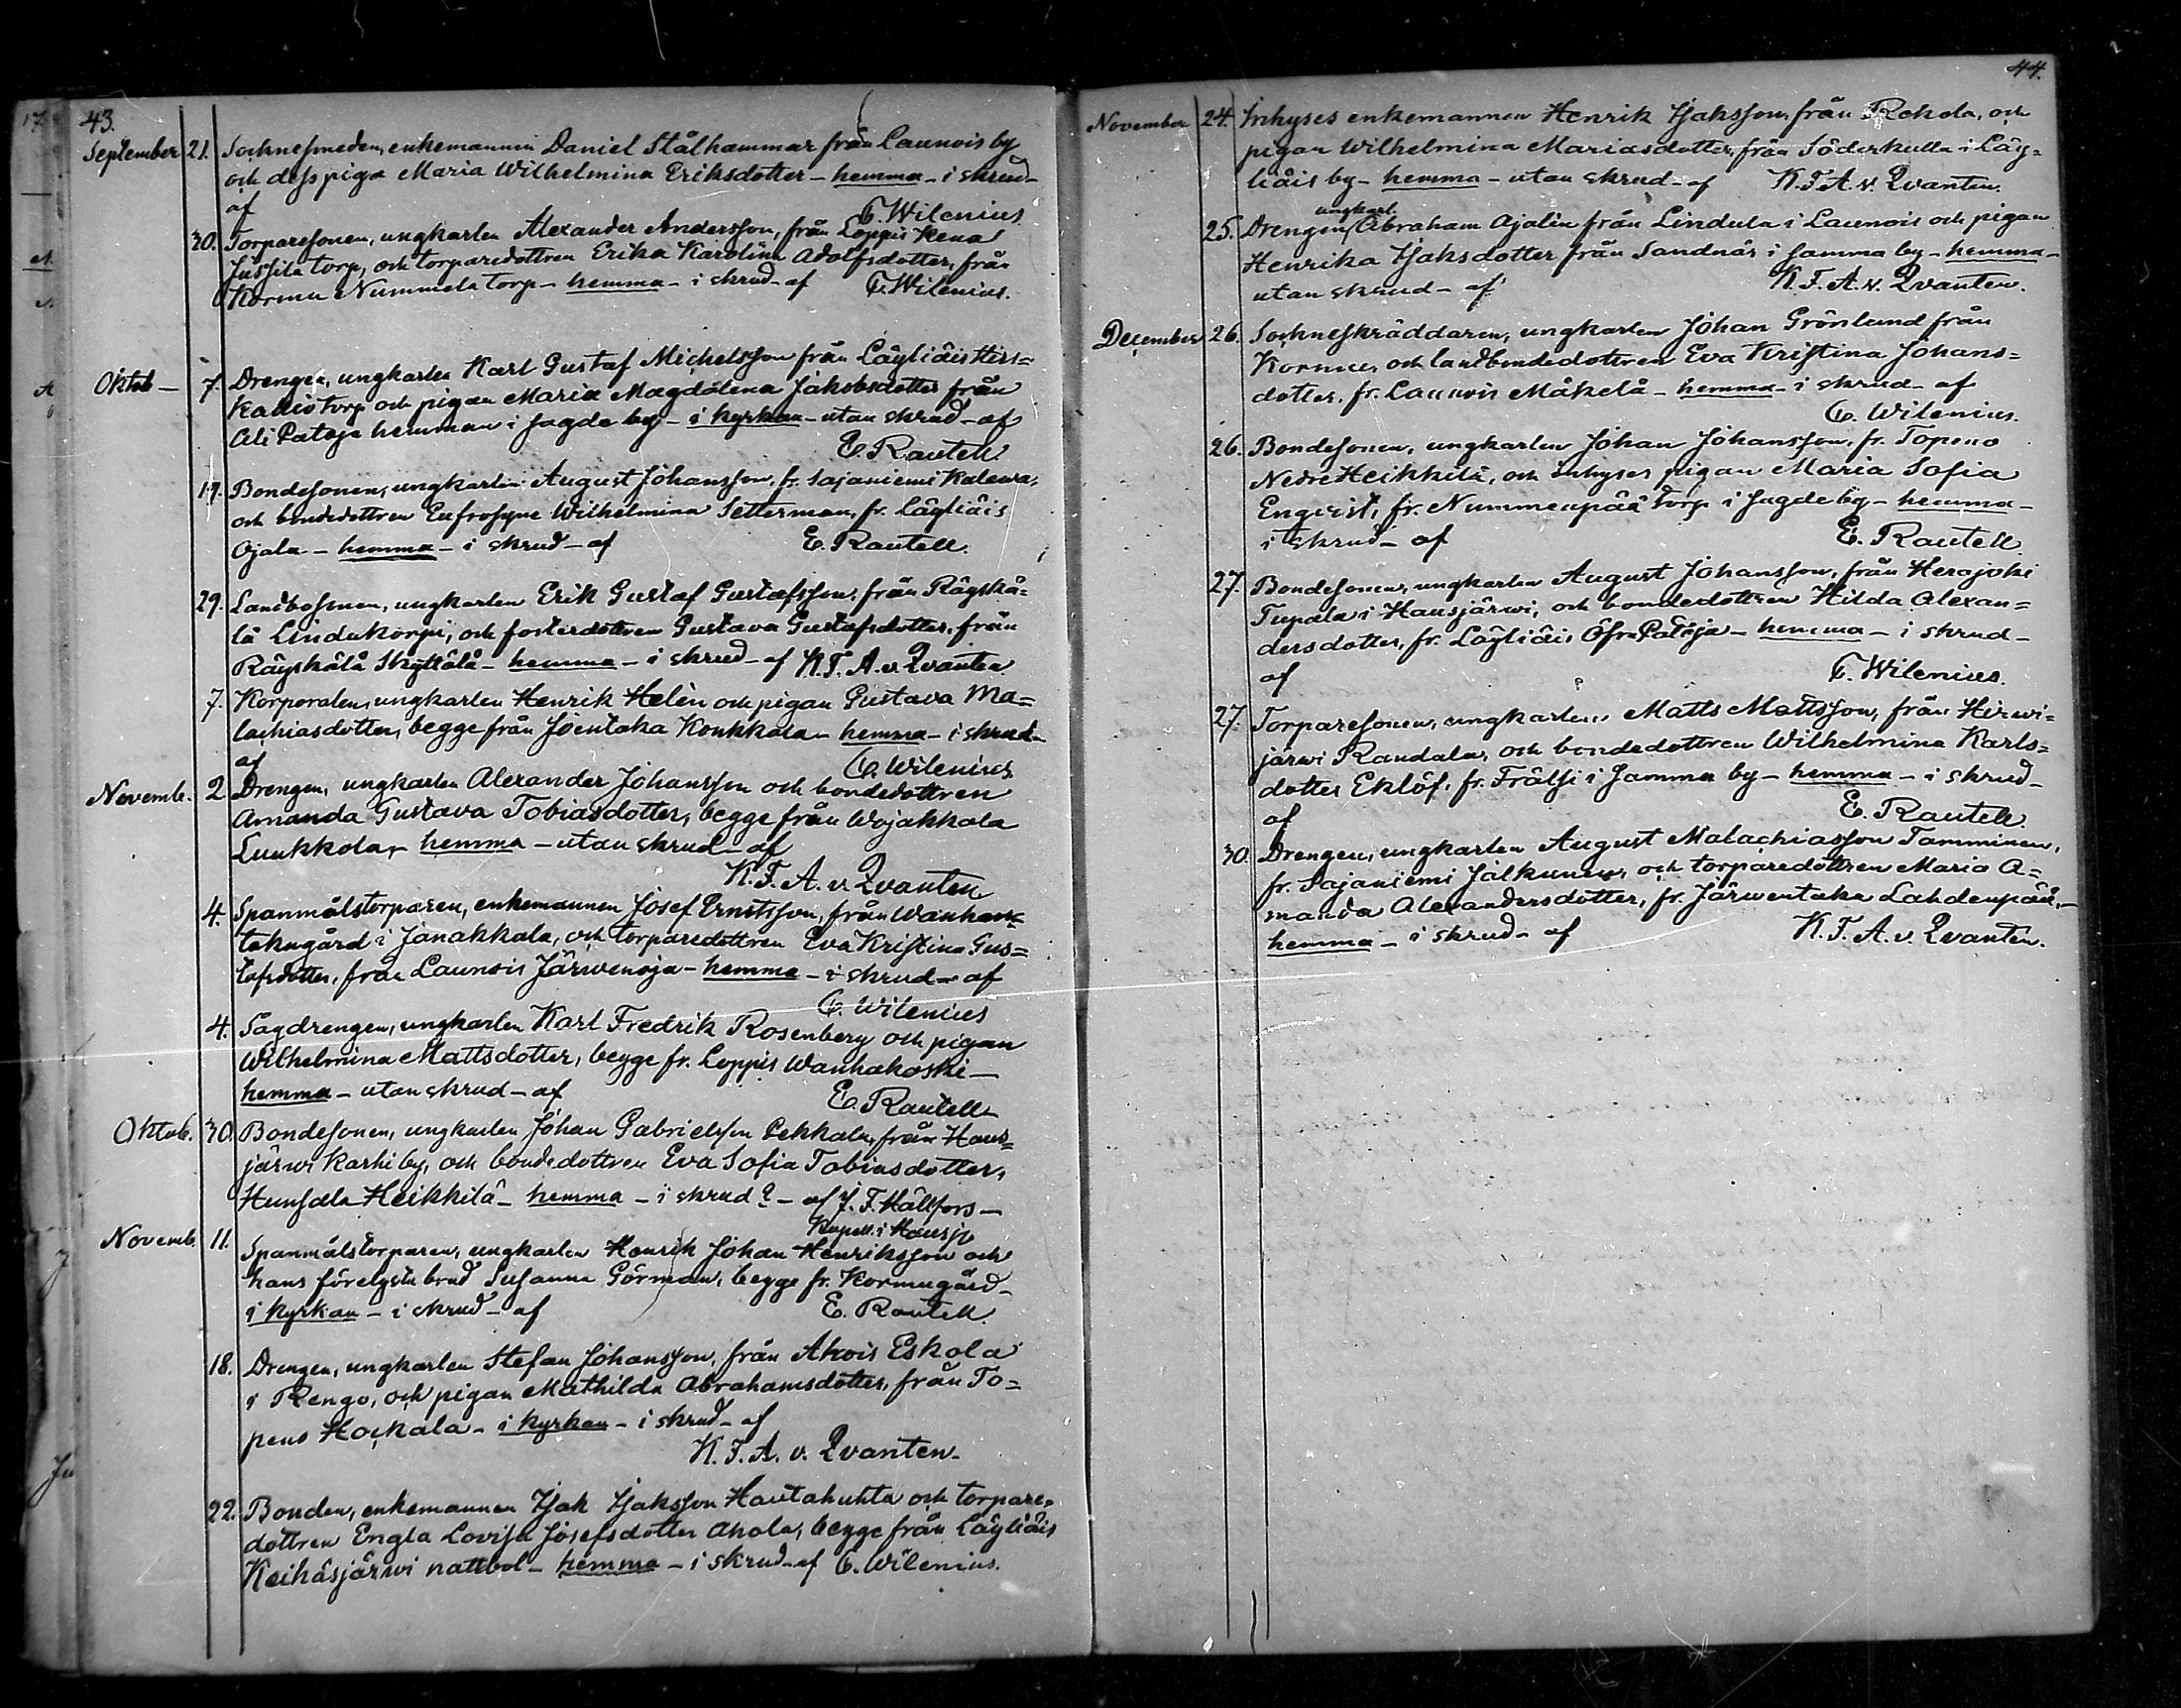 43.
September 21. Socknesmeden, enkemannen Daniel Stålhammar från Launois by
och dess piga Maria Wilhelmina Eriksdotter - hemma - i skrud -
af C. Wilenius
30. Torparesonen, ungkarlen Alexander Andersson, från Loppis Kena
Jussila torp, och torparedottren Erika Karolina Adolfsdotter, från
Kormu Nummela torp - hemma - i skrud - af C. Wilenius.
Oktob - 7. Drengen, ungkarlen Karl Gustaf Michelsson från Läyliäis Hirs=
Kallio torp och pigan Maria Magdalena Jakobsdotter från
Ali Pataja hemman i sagde by - i kyrkan - utan skrud - af
E. Rautell
19. Bondesonen, ungkarlen August Johansson, fr. Sajaniemi Kalewa,
och bondedottren Eufrosyne Wilhelmina Setterman, fr. Läyliäis
Ojala - hemma - i skrud - af E. Rautell.
29. Landbosonen, ungkarlen Erik Gustaf Gustafsson, från Räyskä=
lä Lindukorpi, och fosterdottren Gustava Gustafsdotter, från
Räyskälä Skyttälä - hemma - i skrud - af K. F. A. v. Qvanten
7. Korporalen, ungkarlen Henrik Helén och pigan Gustava Ma=
lachiasdotter, begge från Joentaka Konkkala - hemma - i skrud -
af C. Wilenius
Novemb. 2 Drengen, ungkarlen Alexander Johansson och bondedottren
Amanda Gustava Tobiasdotter, begge från Wojakkala
Luukkola, - hemma - utan skrud - af
K. F. A. v. Qvanten
4. Spanmålstorparen, enkemannen Josef Ernstsson, från Wanhan=
takagård i Janakkala, och torparedottren Eva Kristina Gus=
tafsdotter, från Launois Järwenoja - hemma - i skrud - af
C. Wilenius
4. Sagdrengen, ungkarlen Karl Fredrik Rosenberg och pigan
Wilhelmina Mattsdotter, begge fr. Loppis Wanhakoski -
hemma - utan skrud - af E. Rautell
Oktob. 30. Bondesonen, ungkarlen Johan Gabrielsson Pekkala, från Haus=
järwi Karhi by, och bondedottren Eva Sofia Tobiasdotter,
Hunsala Heikkilä - hemma - i skrud? - af J. F. Hällfors -
Kapell. i Hausjo
Novemb. 11. Spanmålstorparen, ungkarlen Henrik Johan Henriksson och
hans förelgsta brud Susanna Görman, begge fr. Kormugård -
i kyrkan - i skrud - af E. Rautell.
18. Drengen, ungkarlen Stefan Johansson, från Ahois Eskola
i Rengo, och pigan Mathilda Abrahamsdotter, från To=
peno Hockala - i kyrkan - i skrud - af
K. F. A. v. Qvanten.
22. Bonden, enkemannen Isak Isaksson Hautahuhta och torpare=
dottren Engla Lovisa Josefsdotter Ahola, begge från Läyliäis
Keihäsjärwi nattbol - hemma - i skrud - af C. Wilenius.
44.
November 24. Inhyses enkemannen Henrik Isaksson, från Rekola, och
pigan Wilhelmina Mariasdotter, från Söderkulla i Läy=
liäis by - hemma - utan skrud - af K. F. A. v. Qvanten.
ungkarl.
25. Drengen Abraham Ajalin från Lindula i Launois och pigan
Henrika Isaksdotter från Sandnäs i samma by - hemma -
utan skrud - af K. F. A. v. Qvanten.
December 26. Sockneskräddaren, ungkarlen Johan Grönlund från
Kormu, och landbondedottren Eva Kristina Johans=
dotter, fr. Launois Mäkelä - hemma - i skrud - af
C. Wilenius.
26. Bondesonen, ungkarlen Johan Johansson, fr. Topeno
Nedre Heikkilä, och inhyses pigan Maria Sofia
Enqvist, fr. Nummenpää torp i sagde by - hemma -
i skrud - af E. Rautell.
27. Bondesonen, ungkarlen August Johansson, från Herajoki
Tupala i Hausjärwi, och bondedottren Hilda Alexan=
dersdotter, fr. Läyliäis Öfre Pataja - hemma - i skrud -
af C. Wilenius.
27. Torparesonen, ungkarlen Matts Mattsson, från Hirwi=
järwi Randala, och bondedottren Wilhelmina Karls=
dotter Eklöf, fr. Frälsi i samma by - hemma - i skrud -
af E. Rautell.
30. Drengen, ungkarlen August Malachiasson Tamminen,
fr. Sajaniemi Jalkunen, och torparedottren Maria A=
manda Alexandersdotter, fr. Järwentaka Lahdenpää, -
hemma - i skrud - af K. F. A. v. Qvanten.